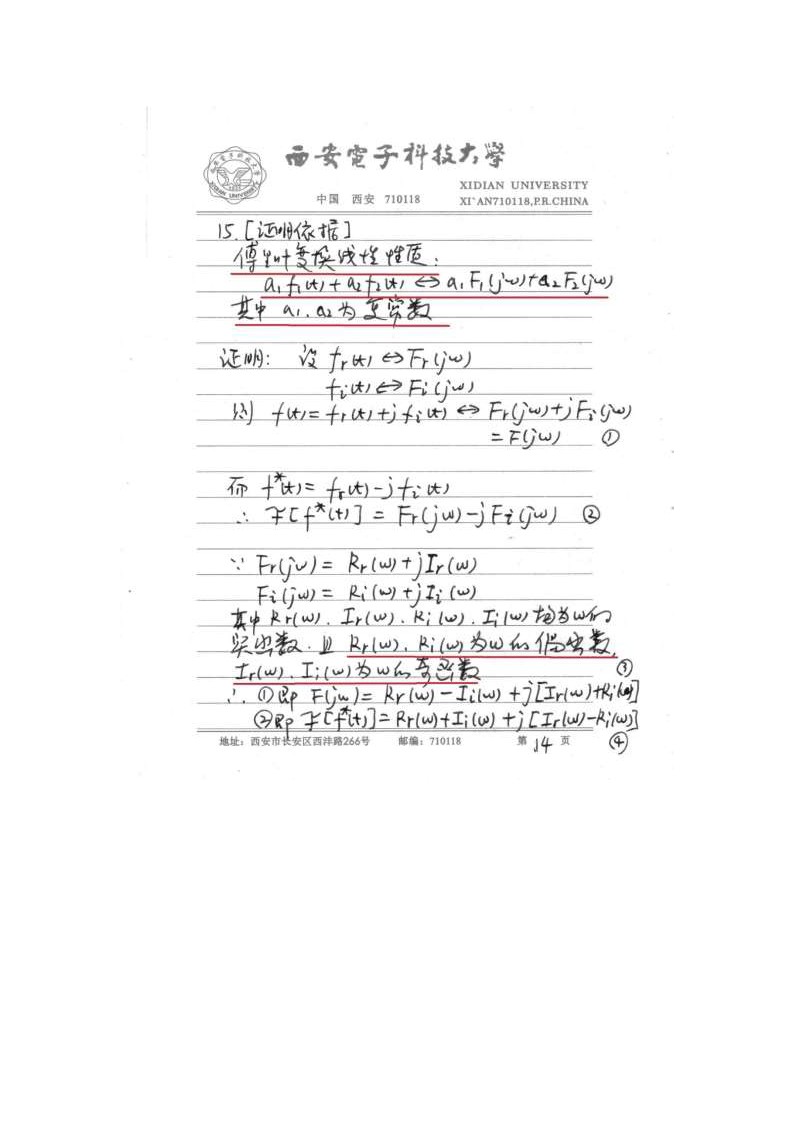 西安電子科技大學
XIDIAN UNIVERSITY
中国 西安 710118 XI'AN710118,P.R.CHINA
15. [证明依据]
傅里叶变换线性性质:
a₁f₁(t)+a₂f₂(t) ⇔ a₁F₁(jω)+a₂F₂(jω)
其中 a₁、a₂为复常数
证明: 设 fr(t) ⇔ Fr(jω)
fi(t) ⇔ Fi(jω)
则 f(t)=fr(t)+jfi(t) ⇔ Fr(jω)+jFi(jω)
=F(jω) ①
而 f*(t)=fr(t)-jfi(t)
∴ ℱ[f*(t)] = Fr(jω)-jFi(jω) ②
∵ Fr(jω) = Rr(ω)+jIr(ω)
Fi(jω) = Ri(ω)+jIi(ω)
其中 Rr(ω)、Ir(ω)、Ri(ω)、Ii(ω)均为ω的
实函数,且 Rr(ω)、Ri(ω)为ω的偶函数,
Ir(ω)、Ii(ω)为ω的奇函数 ③
∴ ①即 F(jω)= Rr(ω)-Ii(ω)+j[Ir(ω)+Ri(ω)]
②即 ℱ[f*(t)]=Rr(ω)+Ii(ω)+j[Ir(ω)-Ri(ω)]
④
地址:西安市长安区西沣路266号 邮编:710118 第 14 页